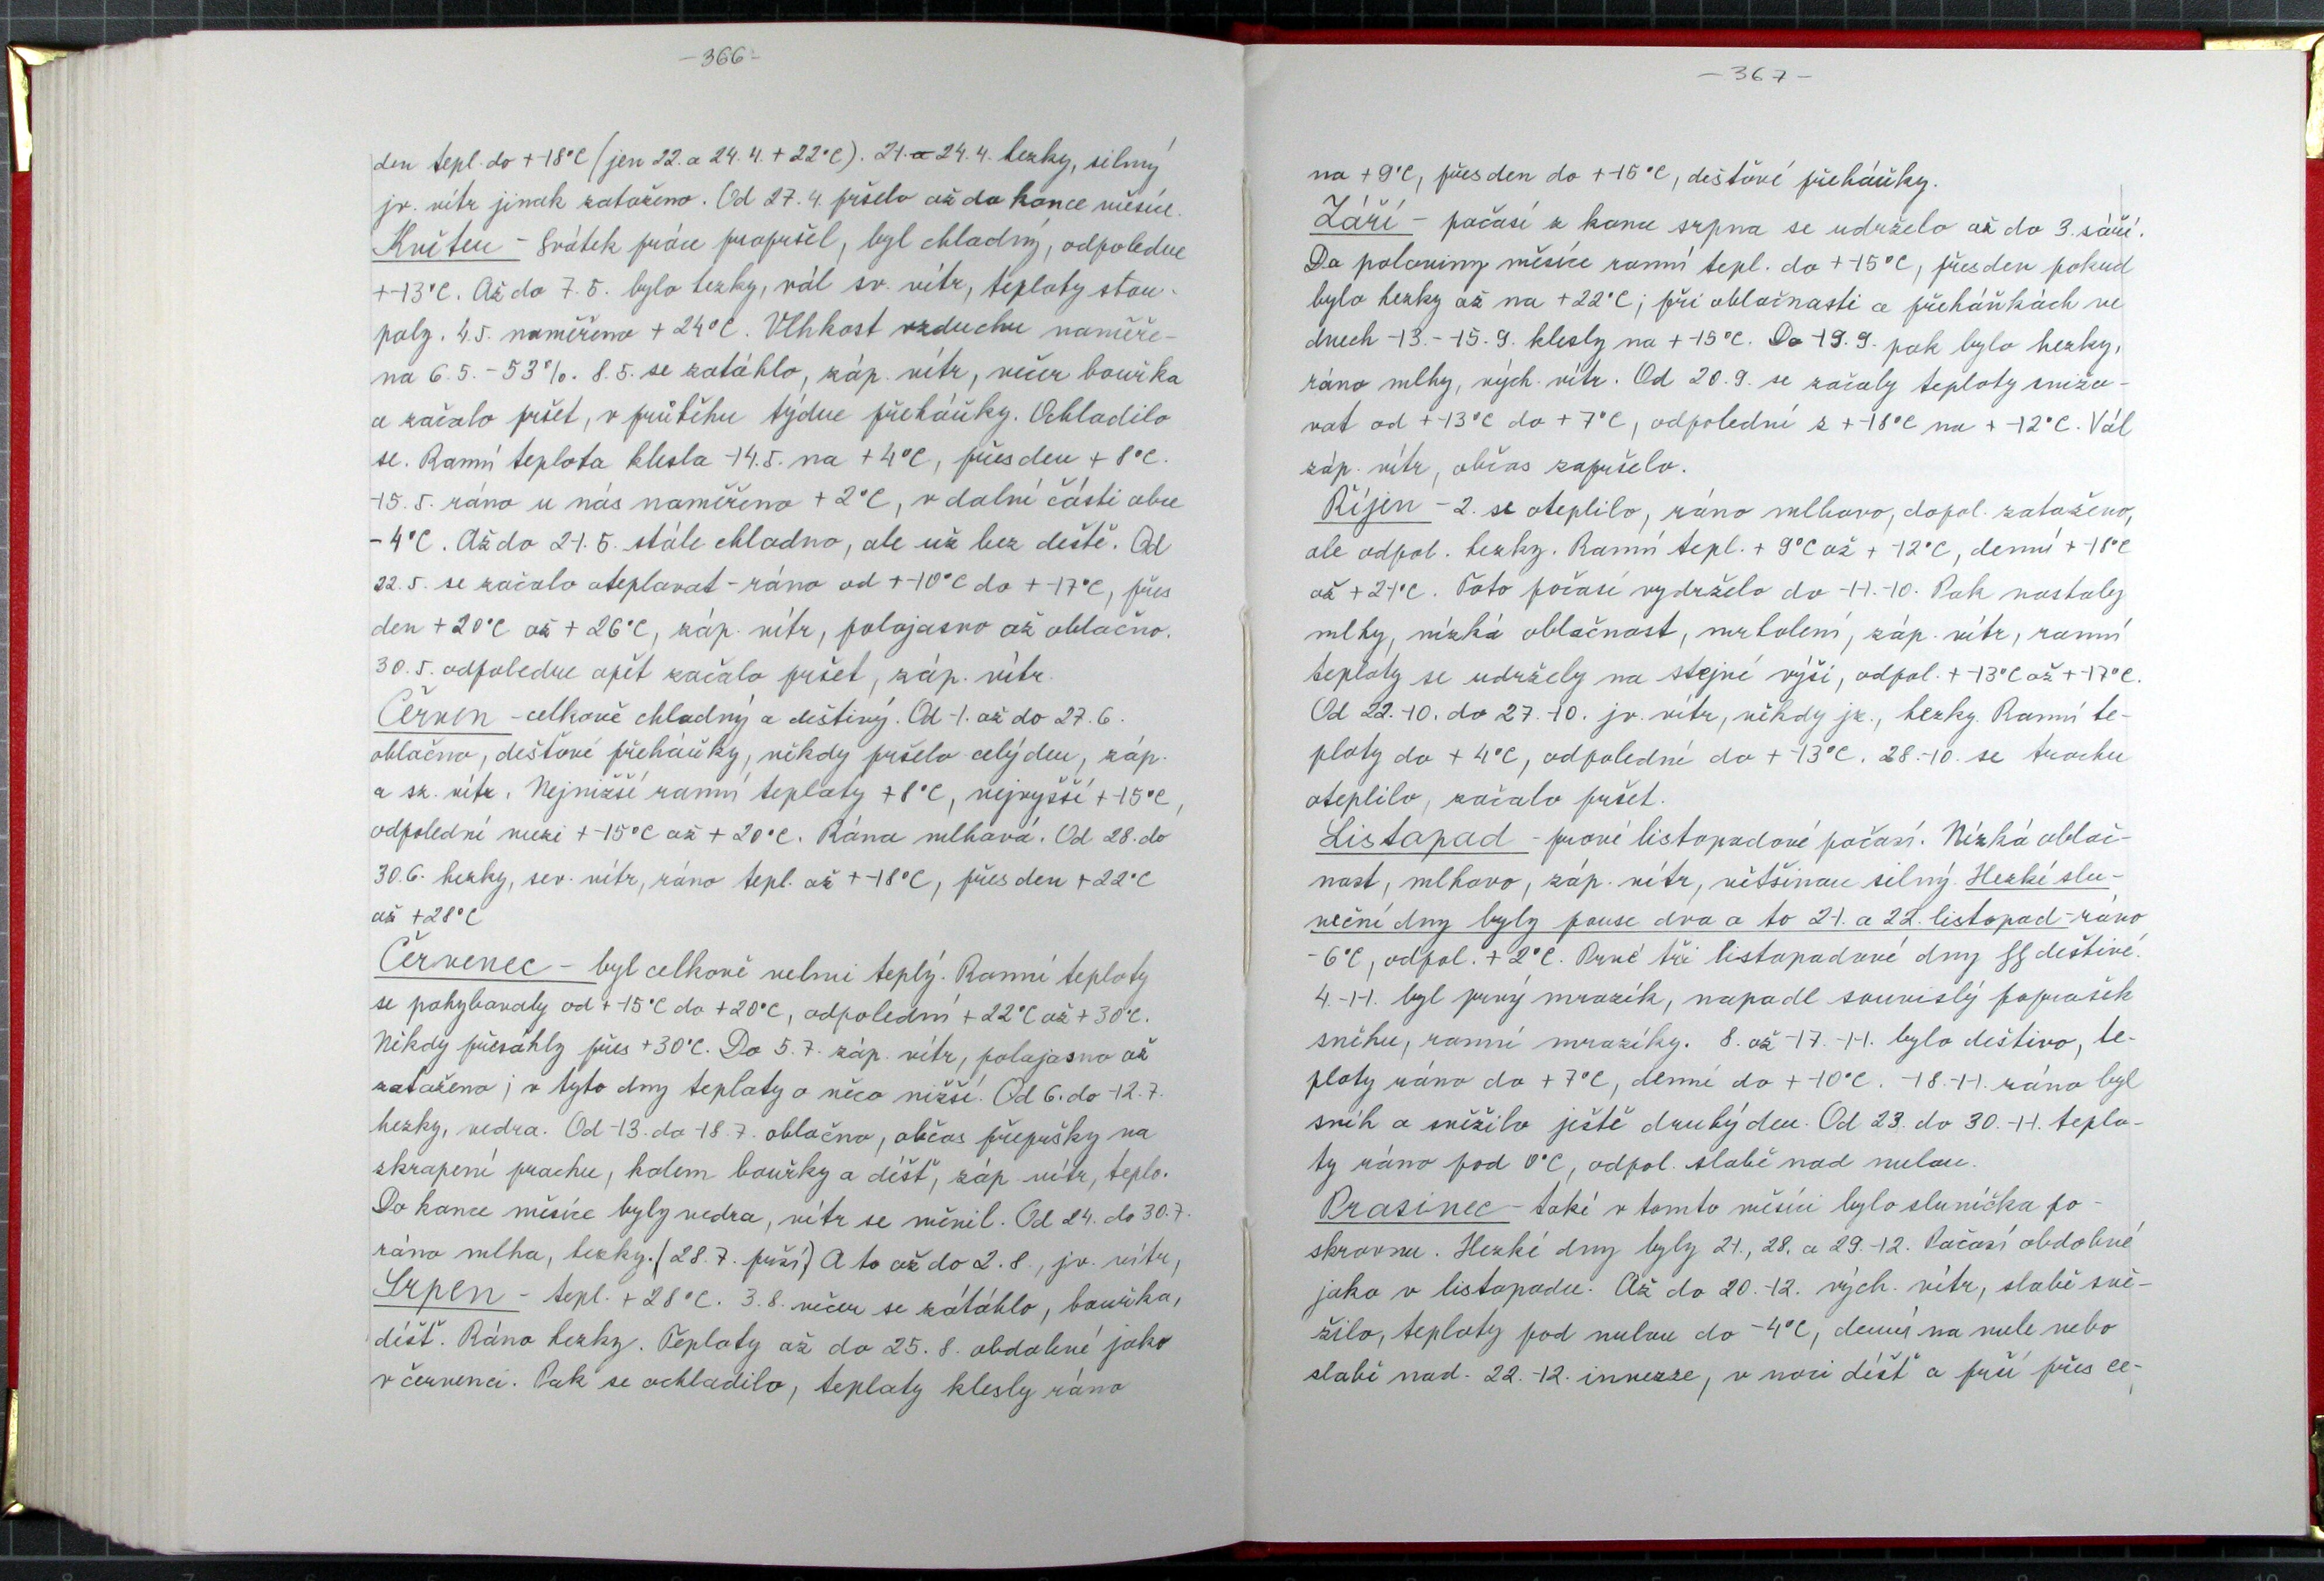 -366-
den tepl. do +18°C (jen 22. a 24.4. +22°C). 21. a 24.4. hezky, silný
jv. vítr jinak zataženo. Od 27.4. pršelo až do konce měsíce.
Květen - Svátek práce propršel, byl chladný, odpoledne
+13°C. Až do 7.5. bylo hezky, vál sv. vítr, teploty stou-
paly. 4.5. naměřeno +24°C. Vlhkost vzduchu naměře-
na 6.5. - 53%. 8.5. se zatáhlo, záp. vítr, večer bouřka
a začalo pršet, v průběhu týdne přeháňky. Ochladilo
se. Ranní teplota klesla 14.5. na +4°C, přes den +8°C.
15.5. ráno u nás naměřeno +2°C, v dolní části obce
-4°C. Až do 21.5. stále chladno, ale už bez deště. Od
22.5. se začalo oteplovat - ráno od +10°C do +17°C, přes
den +20°C až +26°C, záp. vítr, polojasno až oblačno.
30.5. odpoledne opět začalo pršet, záp. vítr.
Červen - celkově chladný a deštivý. Od 1. až do 27.6.
oblačno, dešťové přeháňky, někdy pršelo celý den, záp.
a sz. vítr. Nejnižší ranní teploty +8°C, nejvyšší +15°C,
odpolední mezi +15°C až +20°C. Rána mlhavá. Od 28. do
30.6. hezky, sev. vítr, ráno tepl. až +18°C, přes den +22°C
až +28°C
Červenec - byl celkově velmi teplý. Ranní teploty
se pohybovaly od +15°C do +20°C, odpolední +22°C až +30°C.
Někdy přesáhly přes +30°C. Do 5.7. záp. vítr, polojasno až
zataženo; v tyto dny teploty o něco nižší. Od 6. do 12.7.
hezky, vedra. Od 13. do 18.7. oblačno, občas přepršky na
zkrapení prachu, kolem bouřky a déšť, záp. vítr, teplo.
Do konce měsíce byly vedra, vítr se měnil. Od 24. do 30.7.
ráno mlha, hezky. (28.7. prší) A to až do 2.8., jv. vítr,
Srpen - tepl. +28°C. 3.8. večer se zátáhlo, bouřka,
déšť. Ráno hezky. Teploty až do 25.8. obdobné jako
v červenci. Pak se ochladilo, teploty klesly ráno
-367-
na +9°C, přes den do +15°C, dešťové přeháňky.
Září - počasí z konce srpna se udrželo až do 3. září.
Do poloviny měsíce ranní tepl. do +15°C, přes den pokud
bylo hezky až na +22°C; při oblačnosti a přeháňkách ve
dnech 13. - 15.9. klesly na +15°C. Do 19.9. pak bylo hezky,
ráno mlhy, vých. vítr. Od 20.9. se začaly teploty snižo-
vat od +13°C do +7°C, odpolední z +18°C na +12°C. Vál
záp. vítr, občas zapršelo.
Říjen - 2. se oteplilo, ráno mlhavo, dopol. zataženo,
ale odpol. hezky. Ranní tepl. +9°C až +12°C, denní +18°C
až +21°C. Toto počasí vydrželo do 11.10. Pak nastaly
mlhy, nízká oblačnost, mrholení, záp. vítr, ranní
teploty se udržely na stejné výši, odpol. +13°C až +17°C.
Od 22.10. do 27.10. jv. vítr, někdy jz., hezky. Ranní te-
ploty do +4°C, odpolední do +13°C. 28.10. se trochu
oteplilo, začalo pršet.
Listopad - pravé listopadové počasí. Nízká oblač-
nost, mlhavo, záp. vítr, většinou silný. Hezké slu-
neční dny byly pouze dva a to 21. a 22. listopad - ráno
-6°C, odpol. +2°C. Prvé tři listopadové dny deštivé.
4.11. byl prvý mrazík, napadl souvislý poprašek
sněhu, ranní mrazíky. 8. až 17.11. bylo deštivo, te-
ploty ráno do +7°C, denní do +10°C. 18.11. ráno byl
sníh a sněžilo ještě druhý den. Od 23. do 30.11. teplo-
ty ráno pod 0°C, odpol. slabě nad nulou.
Prosinec - také v tomto měsíci bylo sluníčka po-
skrovnu. Hezké dny byly 21., 28. a 29.12. Počasí obdobné
jako v listopadu. Až do 20.12. vých. vítr, slabě sně-
žilo, teploty pod nulou do -4°C, denní na nule nebo
slabě nad. 22.12. inverze, v noci déšť a prší přes ce-